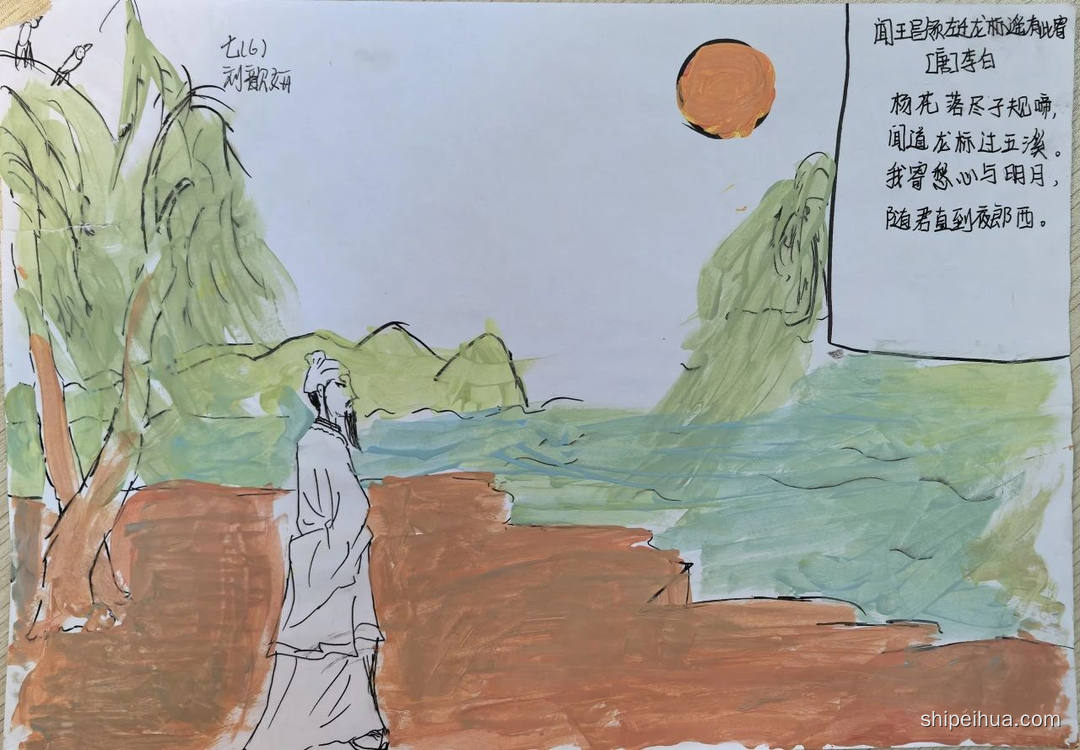 七(6)
刘歆妍
闻王昌龄左迁龙标遥有此寄
[唐]李白
杨花落尽子规啼,
闻道龙标过五溪。
我寄愁心与明月,
随君直到夜郎西。
shipeihua.com